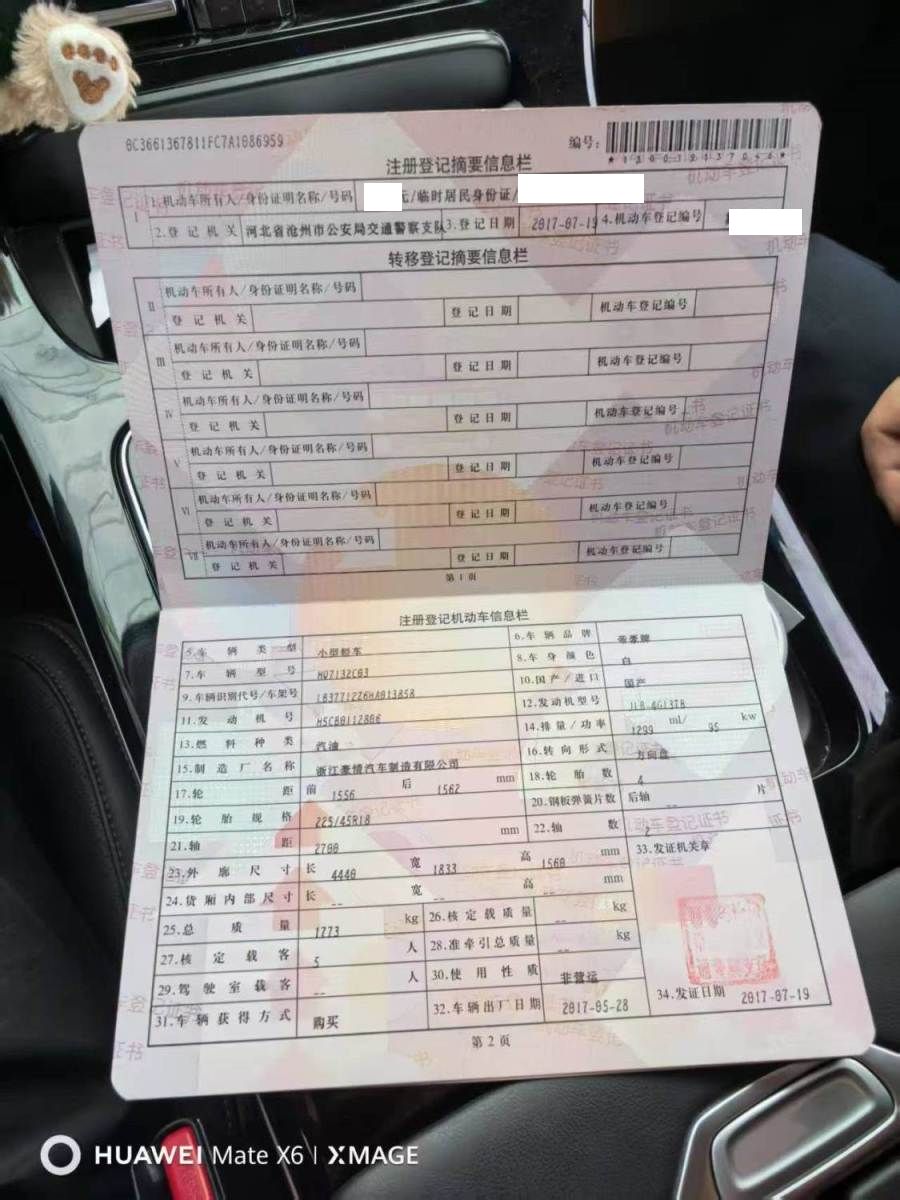 0C3661367811FC7A1086959
编号:
注册登记摘要信息栏
I 1.机动车所有人/身份证明名称/号码 元/临时居民身份证/
2.登记机关 河北省沧州市公安局交通警察支队 3.登记日期 2017-07-19 4.机动车登记编号
转移登记摘要信息栏
II 机动车所有人/身份证明名称/号码
登记机关 登记日期 机动车登记编号
III 机动车所有人/身份证明名称/号码
登记机关 登记日期 机动车登记编号
IV 机动车所有人/身份证明名称/号码
登记机关 登记日期 机动车登记编号
V 机动车所有人/身份证明名称/号码
登记机关 登记日期 机动车登记编号
VI 机动车所有人/身份证明名称/号码
登记机关 登记日期 机动车登记编号
VII 机动车所有人/身份证明名称/号码
登记机关 登记日期 机动车登记编号
第1页
注册登记机动车信息栏
5.车辆类型 小型轿车 6.车辆品牌 帝豪牌
7.车辆型号 8.车身颜色 白
9.车辆识别代号/车架号 10.国产/进口 国产
11.发动机号 12.发动机型号 JLB-4G13TB
13.燃料种类 汽油 14.排量/功率 1299 ml/ 95 kw
15.制造厂名称 浙江豪情汽车制造有限公司 16.转向形式 方向盘
17.轮距 前 1556 后 1562 mm 18.轮胎数 4
19.轮胎规格 225/45R18 20.钢板弹簧片数 后轴 -- 片
21.轴距 2700 mm 22.轴数 2
23.外廓尺寸 长 4440 宽 1833 高 1560 mm 33.发证机关章
24.货厢内部尺寸 长 -- 宽 -- 高 -- mm
25.总质量 1773 kg 26.核定载质量 -- kg
27.核定载客 5 人 28.准牵引总质量 -- kg
29.驾驶室载客 -- 人 30.使用性质 非营运
31.车辆获得方式 购买 32.车辆出厂日期 2017-05-28 34.发证日期 2017-07-19
第2页
HUAWEI Mate X6 | XMAGE